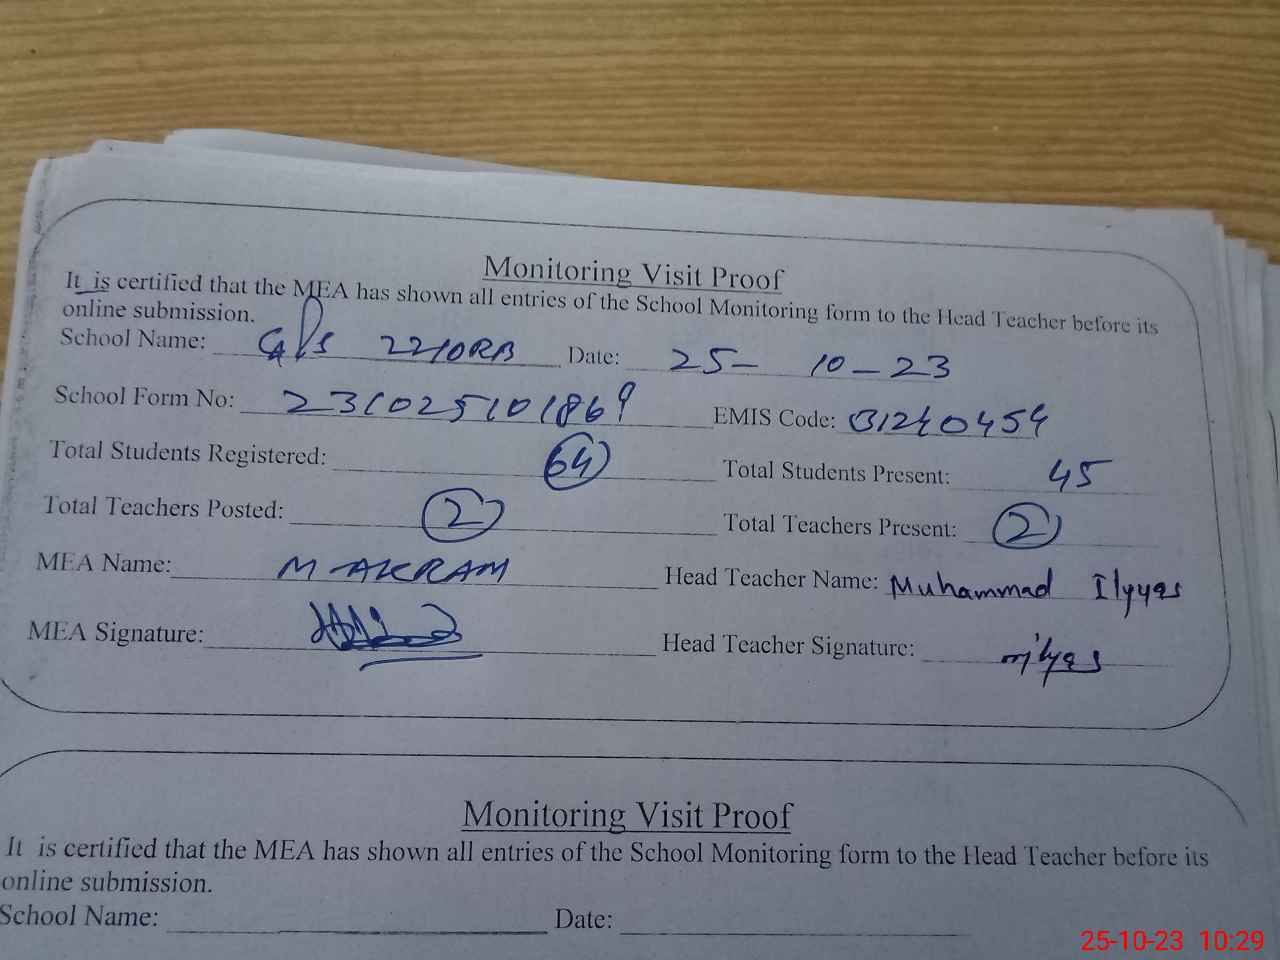 Monitoring Visit Proof
It is certified that the MEA has shown all entries of the School Monitoring form to the Head Teacher before its
online submission.
School Name: GPS Date: 25- 10-23
School Form No: 231025101869 EMIS Code: 31240454
Total Students Registered: 64 Total Students Present: 45
Total Teachers Posted: 2 Total Teachers Present: 2
MEA Name: M AKRAM Head Teacher Name: Muhammad Ilyyas
MEA Signature: Head Teacher Signature:
Monitoring Visit Proof
It is certified that the MEA has shown all entries of the School Monitoring form to the Head Teacher before its
online submission.
School Name: Date:
25-10-23 10:29